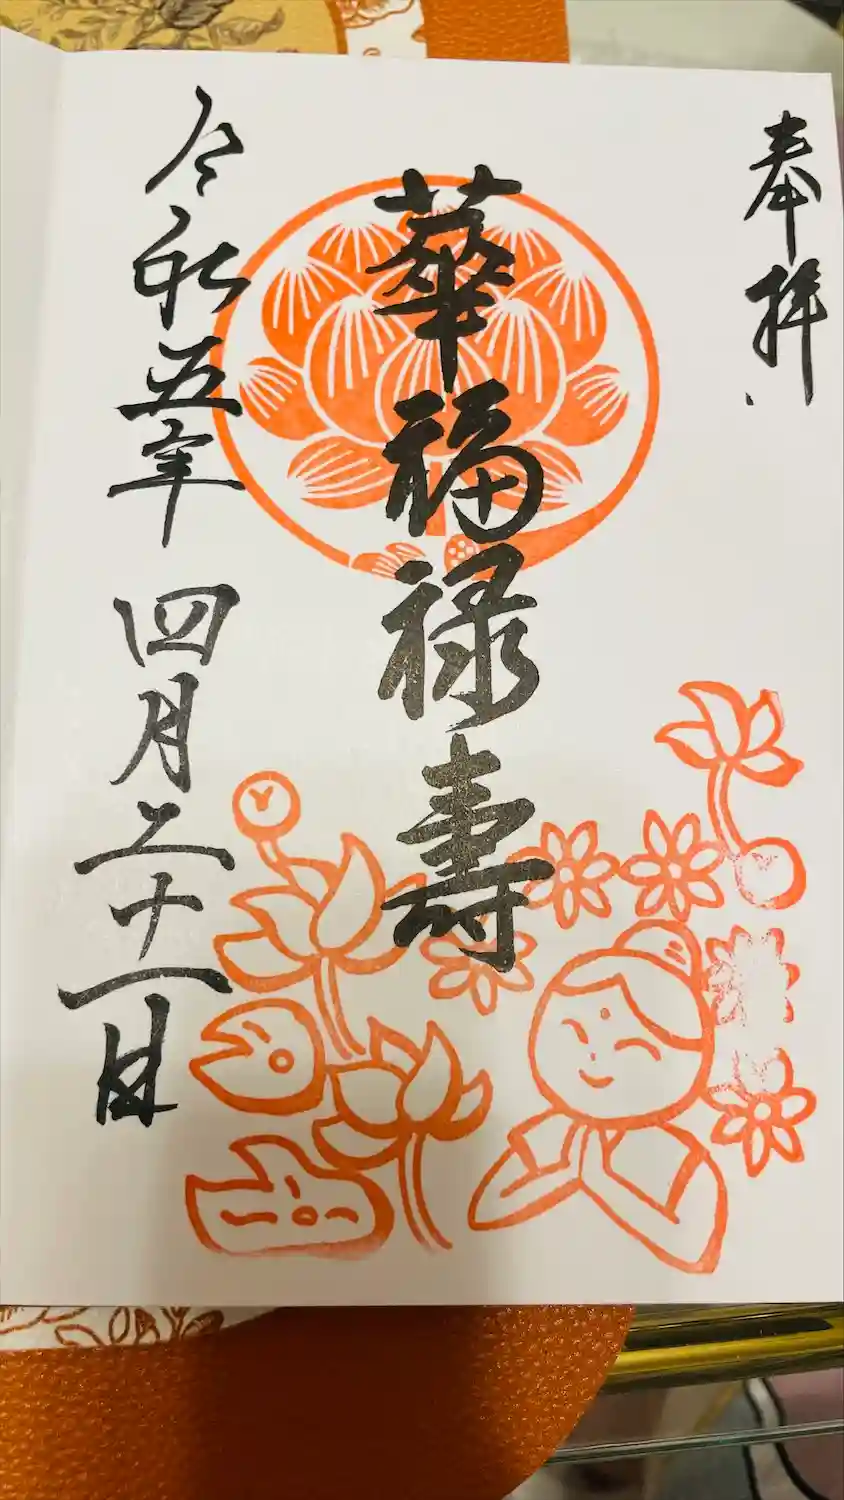 奉拝
華福禄壽
令和五年 四月二十一日